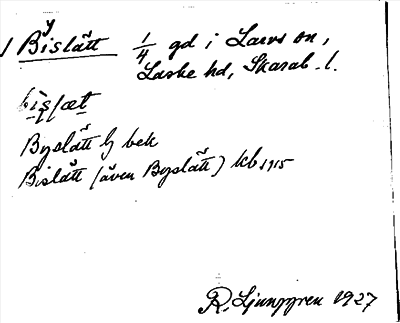 Bislätt 1/4 gd i Larvs sn,
Laske hd, Skarab. l.
Byslätt bek
Bislätt (även Byslätt) kb 1915
R. Ljunggren 1927